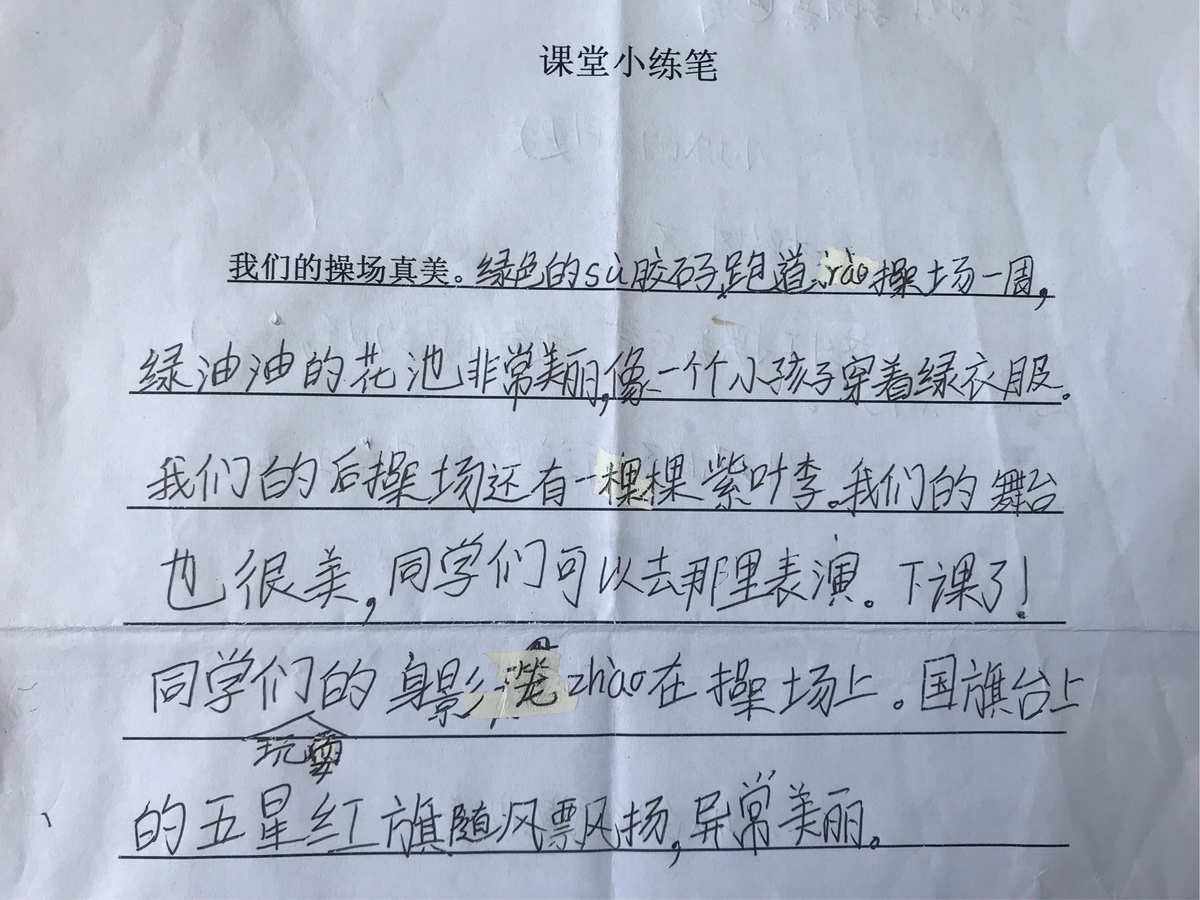 课堂小练笔
我们的操场真美。绿色的sù胶码跑道rào操场一周，
绿油油的花池非常美丽，像一个小孩子穿着绿衣服。
我们的后操场还有一棵棵紫叶李。我们的舞台
也很美，同学们可以去那里表演。下课了！
同学们的身影zhào在操场上。国旗台上
玩耍
的五星红旗随风飘扬，异常美丽。